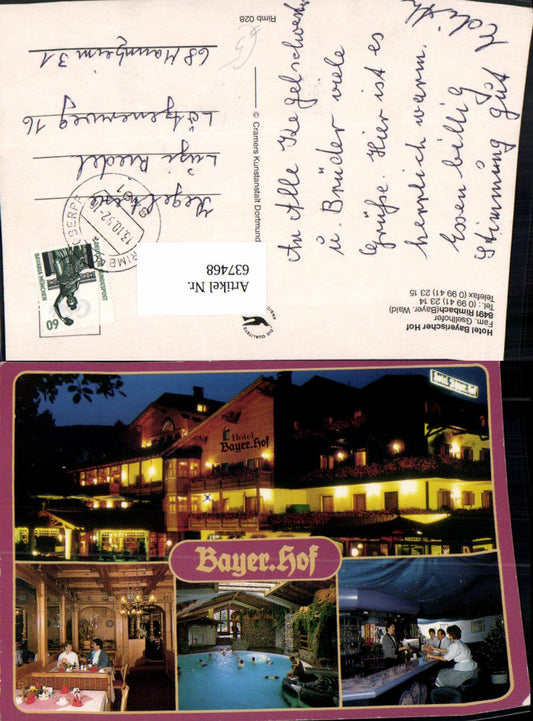 An Alle Kegelschwestern
u. Brüder viele
Grüße. Hier ist es
herrlich warm.
Essen billig
Stimmung gut
Edith
Luzi Riedel
Lötzenerweg 16
68 Mannheim 31
Rimb 028
© Cramers Kunstanstalt Dortmund
Hotel Bayerischer Hof
Fam. Gisellhofer
8491 Rimbach(Bayer. Wald)
Tel.: (0 99 41) 23 14
Telefax (0 99 41) 23 15
Artikel Nr.
637468
13.10.92
8491
60
BAVARIA MÜNCHEN
Hotel
Bayer.Hof
Bayer.Hof